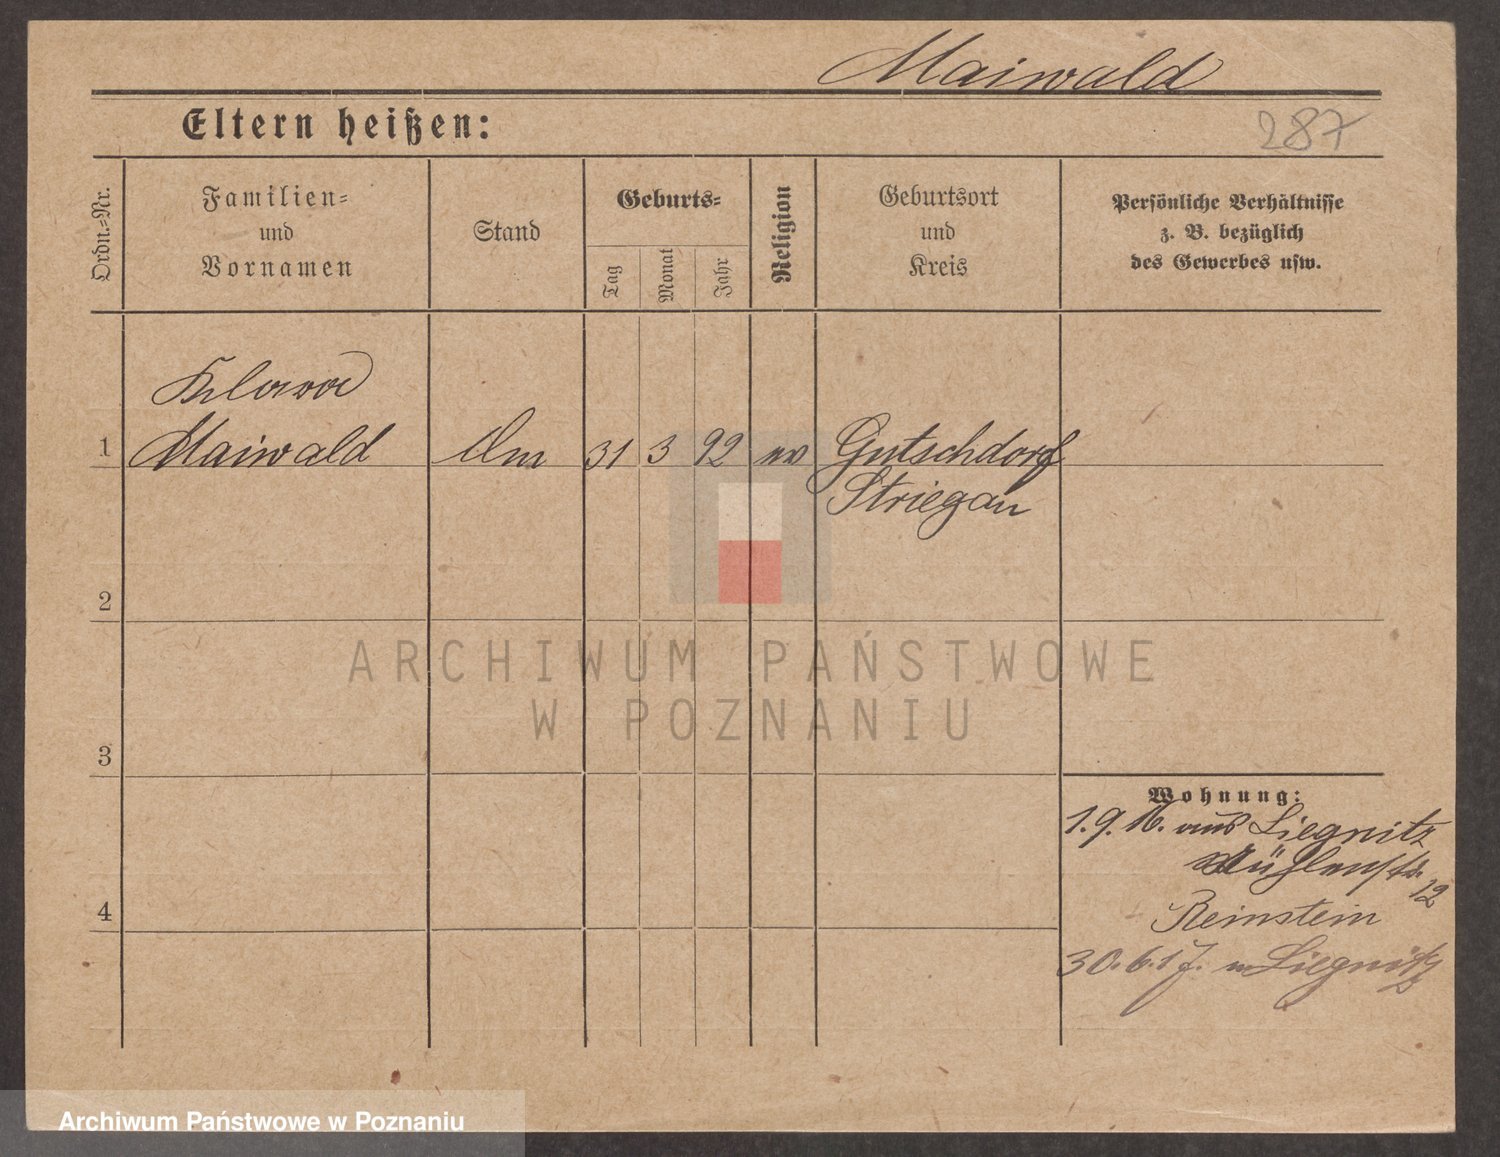 Maiwald
Eltern heißen:
287
Ordn.-Nr.
Familien-
und
Vornamen
Stand
Geburts-
Tag
Monat
Jahr
Religion
Geburtsort
und
Kreis
Persönliche Verhältnisse
z. B. bezüglich
des Gewerbes usw.
Klara
1 Maiwald 31 3 92 ev Gutschdorf
Striegau
2
3
4
ARCHIWUM PAŃSTWOWE
W POZNANIU
Wohnung:
1.9.16. aus Liegnitz
Mühlenstr.
12
Reinstein
30.6.17. n Liegnitz
Archiwum Państwowe w Poznaniu